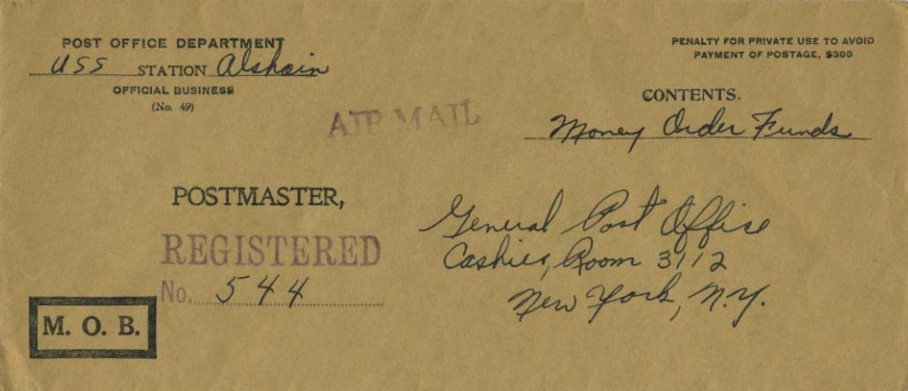 POST OFFICE DEPARTMENT
USS STATION Alshain
OFFICIAL BUSINESS
(No. 49)
PENALTY FOR PRIVATE USE TO AVOID
PAYMENT OF POSTAGE, $300
CONTENTS.
Money Order Funds
AIR MAIL
POSTMASTER,
REGISTERED
No. 544
General Post Office
Cashier, Room 3112
New York, N.Y.
M. O. B.